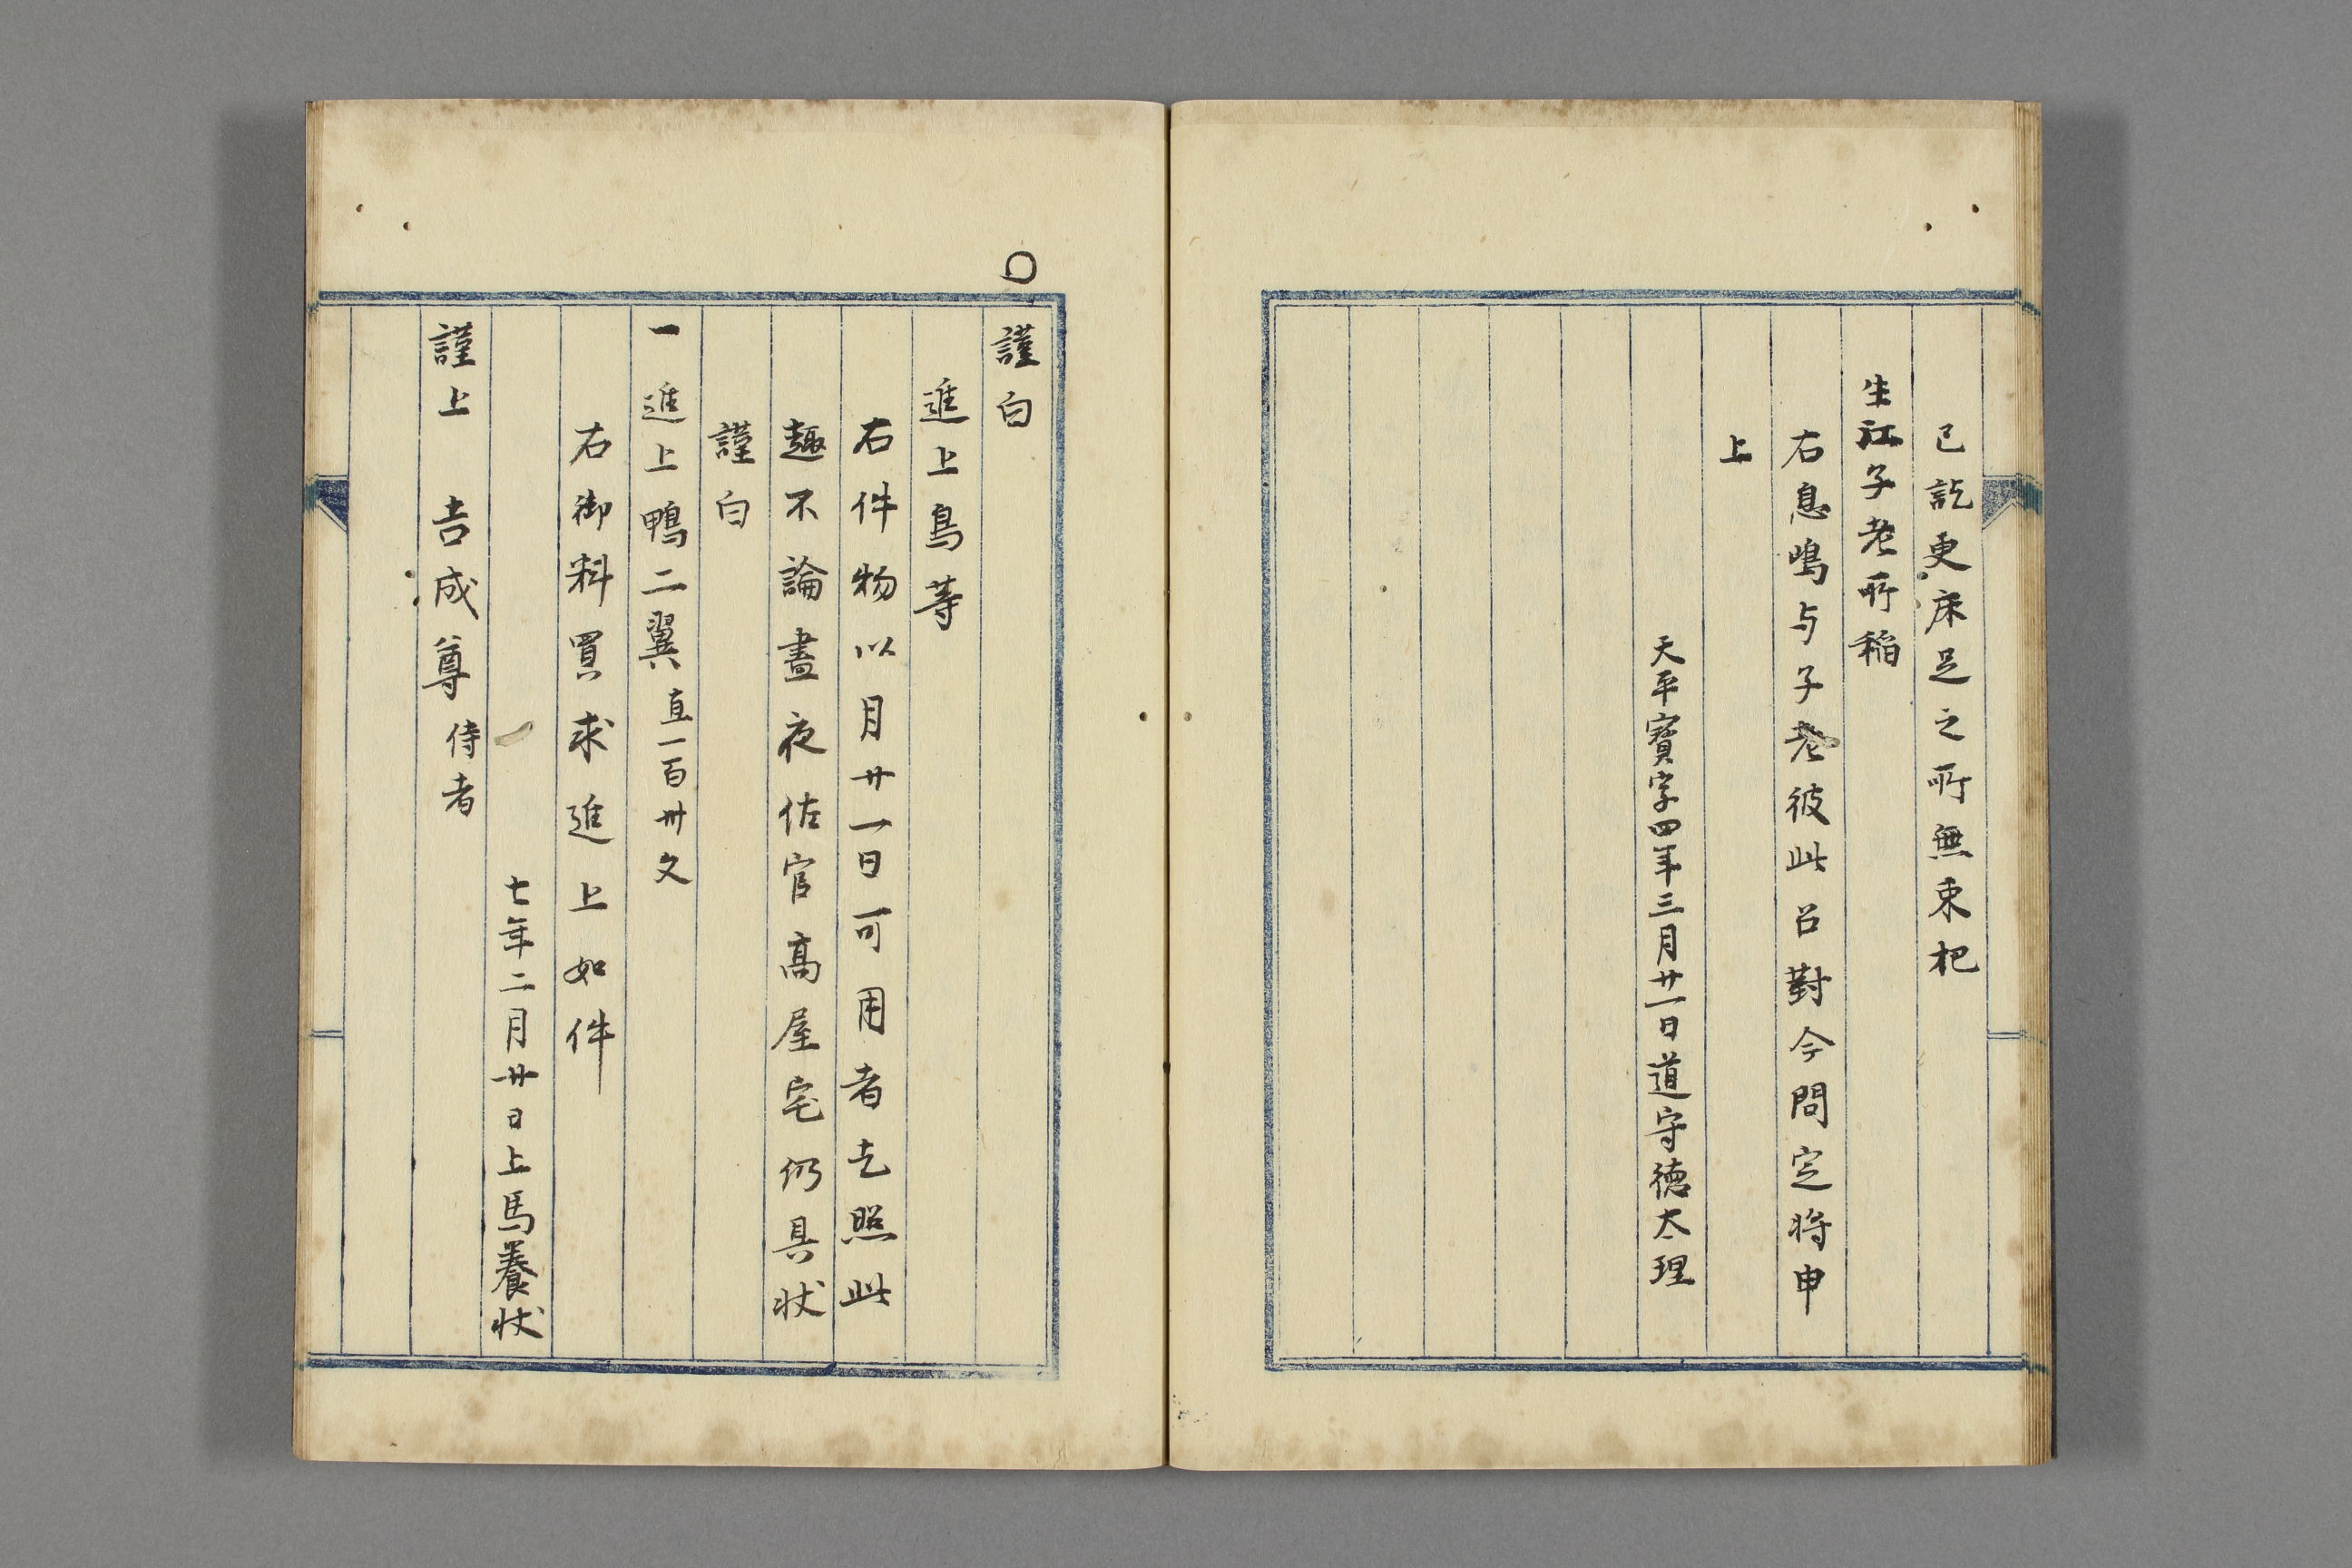 已訖更床足之所無束把
生江子老所稲
右息嶋与子老彼此召對今問定将申
上
天平寶字四年三月廿一日道守徳太理
○
謹白
進上鳥等
右件物以月廿一日可用者乞照此
趣不論晝夜佐官髙屋宅仍具状
謹白
一 進上鴨二翼 直一百卅文
右御料買求進上如件
七年二月廿日上馬養状
謹上 吉成尊 侍者